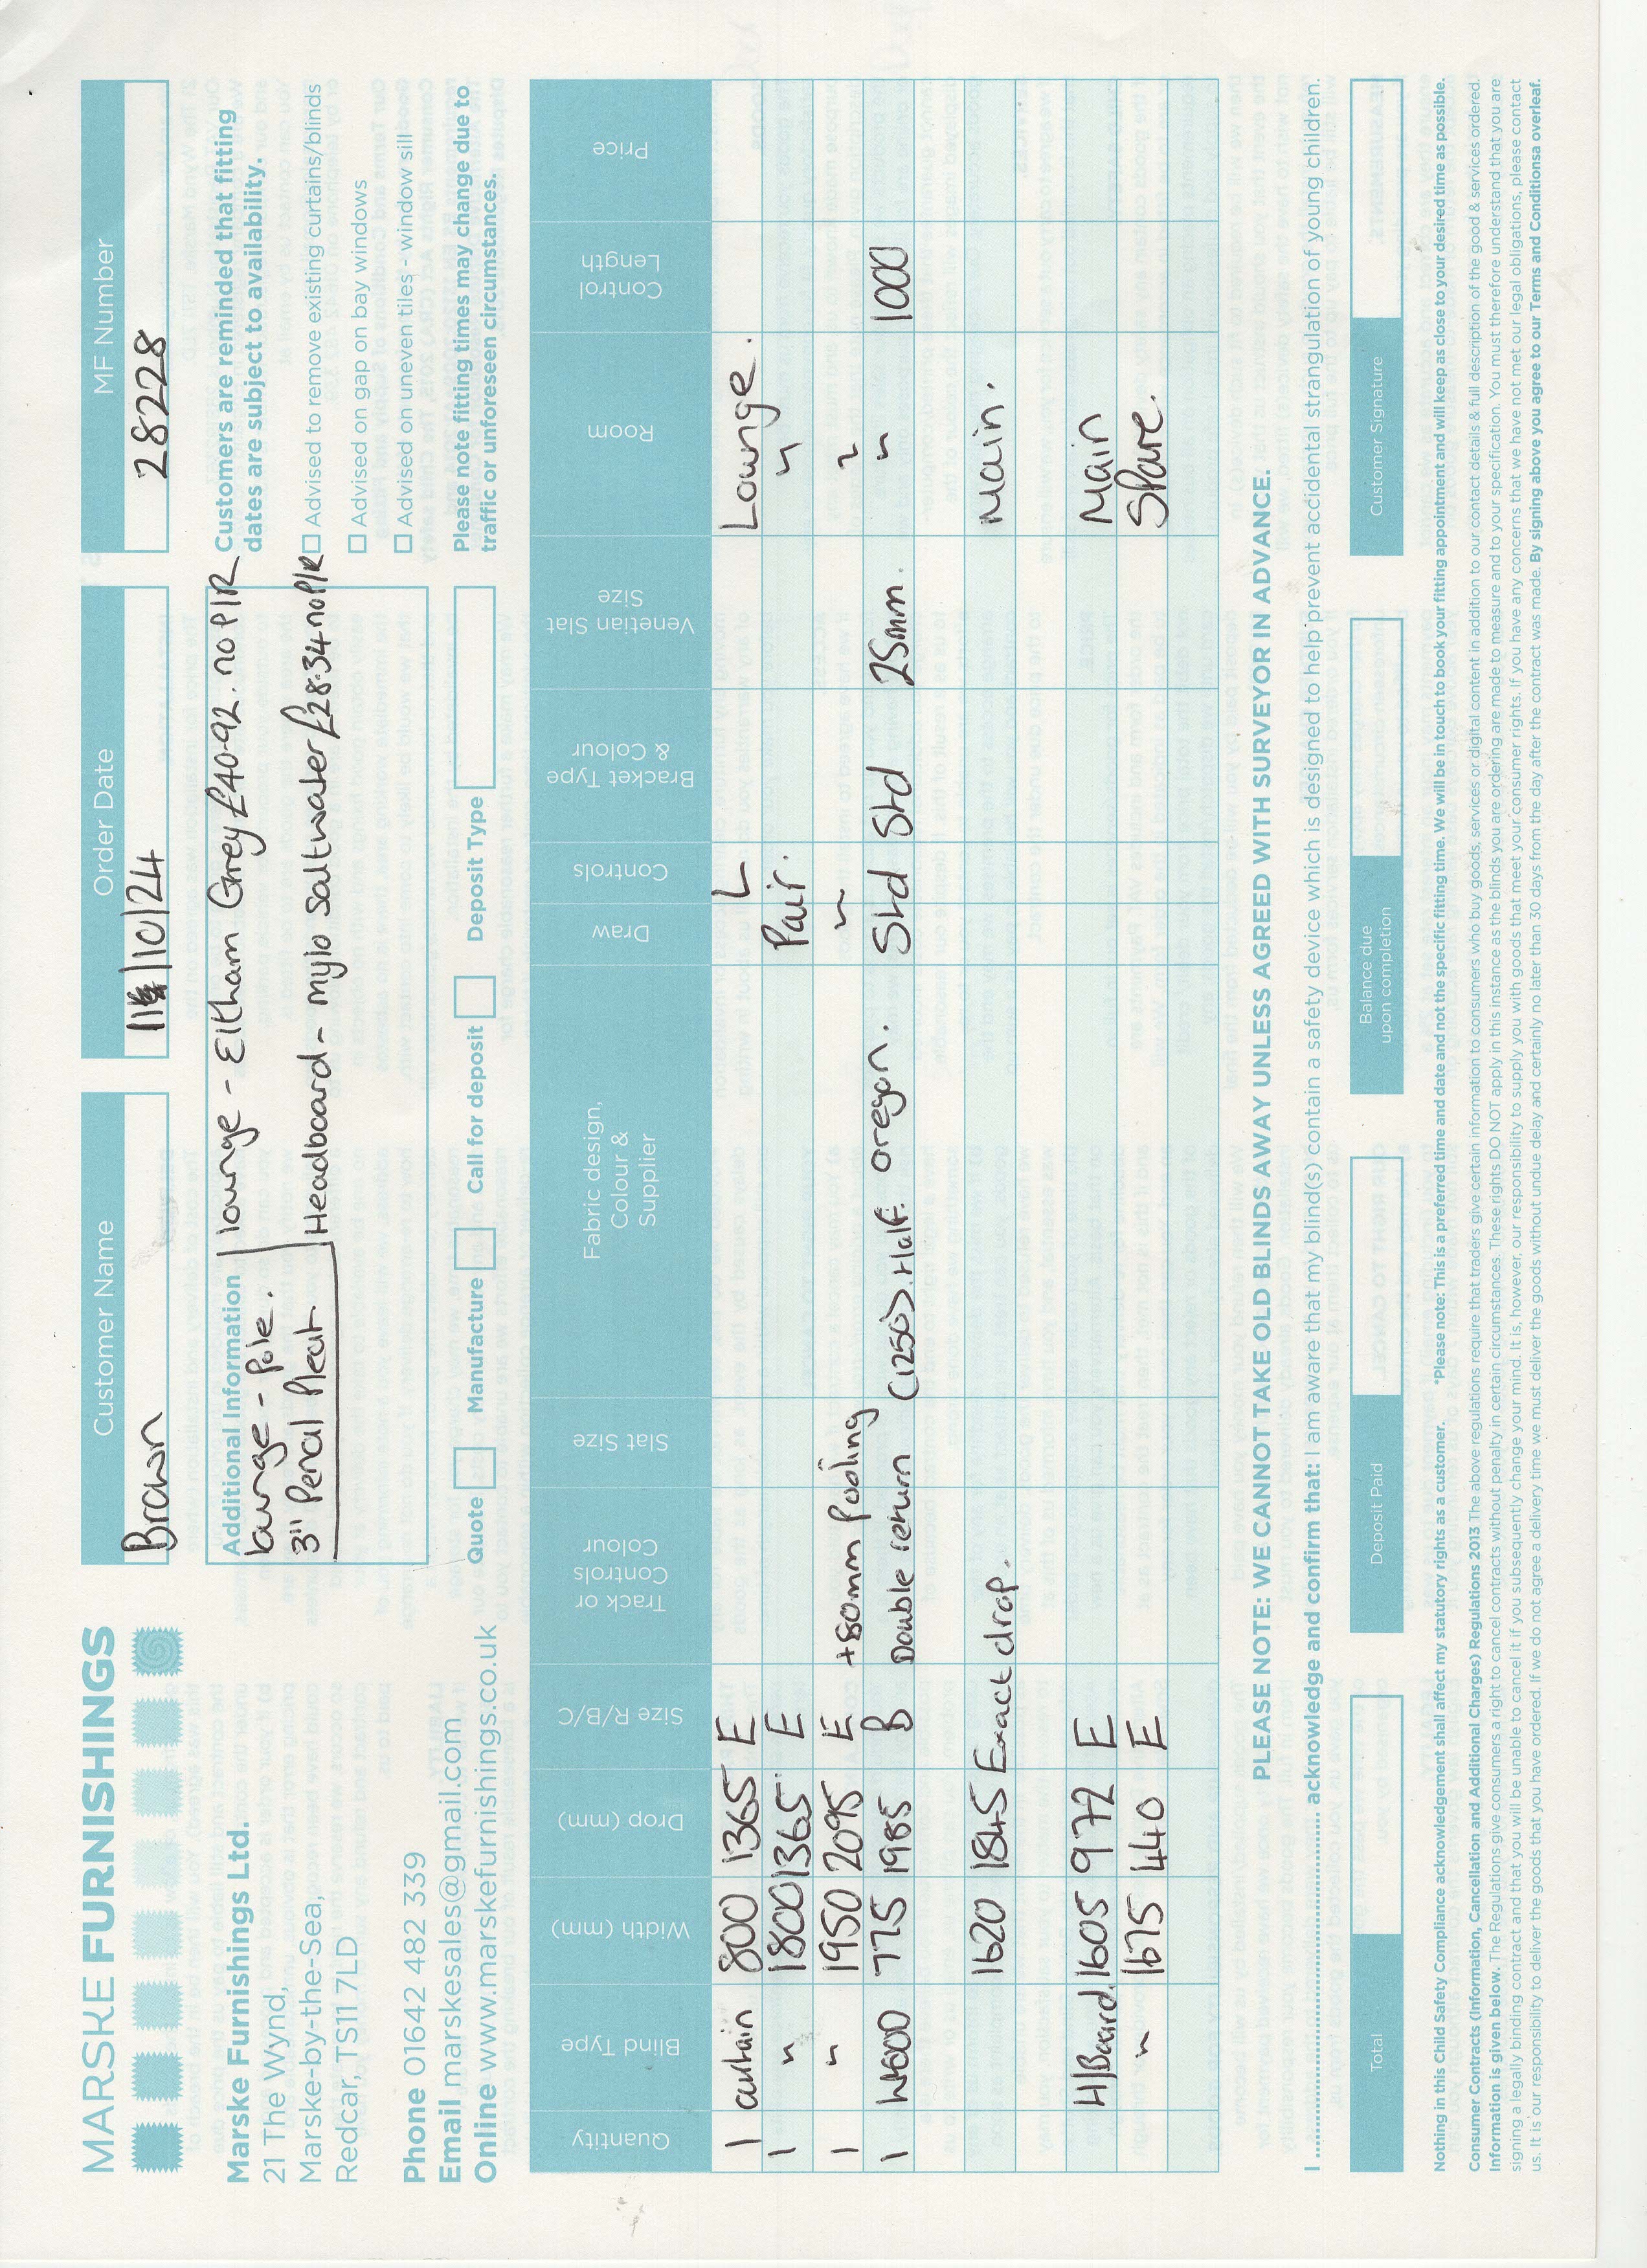 MARSKE FURNISHINGS
Marske Furnishings Ltd.
21 The Wynd,
Marske-by-the-Sea,
Redcar, TS11 7LD
Phone 01642 482 339
Email marskesales@gmail.com
Online www.marskefurnishings.co.uk
Customer Name
Brown
Order Date
11/10/24
MF Number
28228
Additional Information
lounge - Pole.
3" Pencil Pleat
lounge - Eltham Grey £40-92. no P/R
Headboard - mylo Saltwater £28.34 no P/R
Customers are reminded that fitting
dates are subject to availability.
Advised to remove existing curtains/blinds
Advised on gap on bay windows
Advised on uneven tiles - window sill
Please note fitting times may change due to
traffic or unforeseen circumstances.
Quote Manufacture Call for deposit Deposit Type
Quantity Blind Type Width (mm) Drop (mm) Size R/B/C Track or Controls Colour Slat Size Fabric design, Colour & Supplier Draw Controls Bracket Type & Colour Venetian Slat Size Room Control Length Price
1 curtain 800 1365 E L Lounge.
1 " 1800 1365 E Pair. "
1 " 1950 2095 E +80mm Pooling " "
1 Wood 775 1985 B Double return (1250) Half. oregon. Std Std 25mm. " 1000
1620 1845 Exact drop. Main.
H/Board. 1605 972 E Main
" 1675 440 E Spare.
PLEASE NOTE: WE CANNOT TAKE OLD BLINDS AWAY UNLESS AGREED WITH SURVEYOR IN ADVANCE.
I .......... acknowledge and confirm that: I am aware that my blind(s) contain a safety device which is designed to help prevent accidental strangulation of young children.
Total Deposit Paid Balance due upon completion Customer Signature
Nothing in this Child Safety Compliance acknowledgement shall affect my statutory rights as a customer. *Please note: This is a preferred time and date and not the specific fitting time. We will be in touch to book your fitting appointment and will keep as close to your desired time as possible.
Consumer Contracts (Information, Cancellation and Additional Charges) Regulations 2013 The above regulations require that traders give certain information to consumers who buy goods, services or digital content in addition to our contact details & full description of the good & services ordered.
Information is given below. The Regulations give consumers a right to cancel contracts without penalty in certain circumstances. These rights DO NOT apply in this instance as the blinds you are ordering are made to measure and to your specification. You must therefore understand that you are
signing a legally binding contract and that you will be unable to cancel it if you subsequently change your mind. It is, however, our responsibility to supply you with goods that meet your consumer rights. If you have any concerns that we have not met our legal obligations, please contact
us. It is our responsibility to deliver the goods that you have ordered. If we do not agree a delivery time we must deliver the goods without undue delay and certainly no later than 30 days from the day after the contract was made. By signing above you agree to our Terms and Conditionsa overleaf.